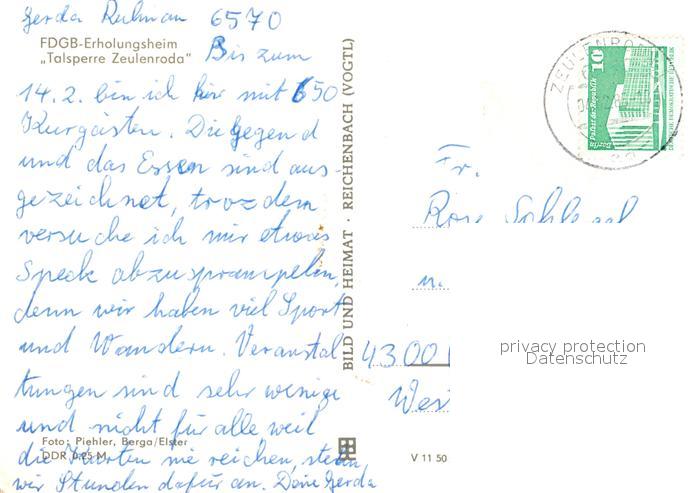 Gerda Rulman 6570
FDGB-Erholungsheim
„Talsperre Zeulenroda"
Bis zum
14.2. bin ich hier mit 650
Kurgästen. Die Gegend
und das Essen sind aus-
gezeichnet, trozdem
versuche ich mir etwas
Speck abzustrampeln,
denn wir haben viel Sport
und Wandern. Veranstal
tungen sind sehr wenige
und nicht für alle weil
Foto: Piehler, Berga/Elster
DDR 0,25 M
die Karten nie reichen, stehn
wir Stunden dafür an. Deine Gerda
BILD UND HEIMAT · REICHENBACH (VOGTL)
V 11 50
ZEULENRODA
10
Berlin, Palast der Republik
Fr.
4300
privacy protection
Datenschutz